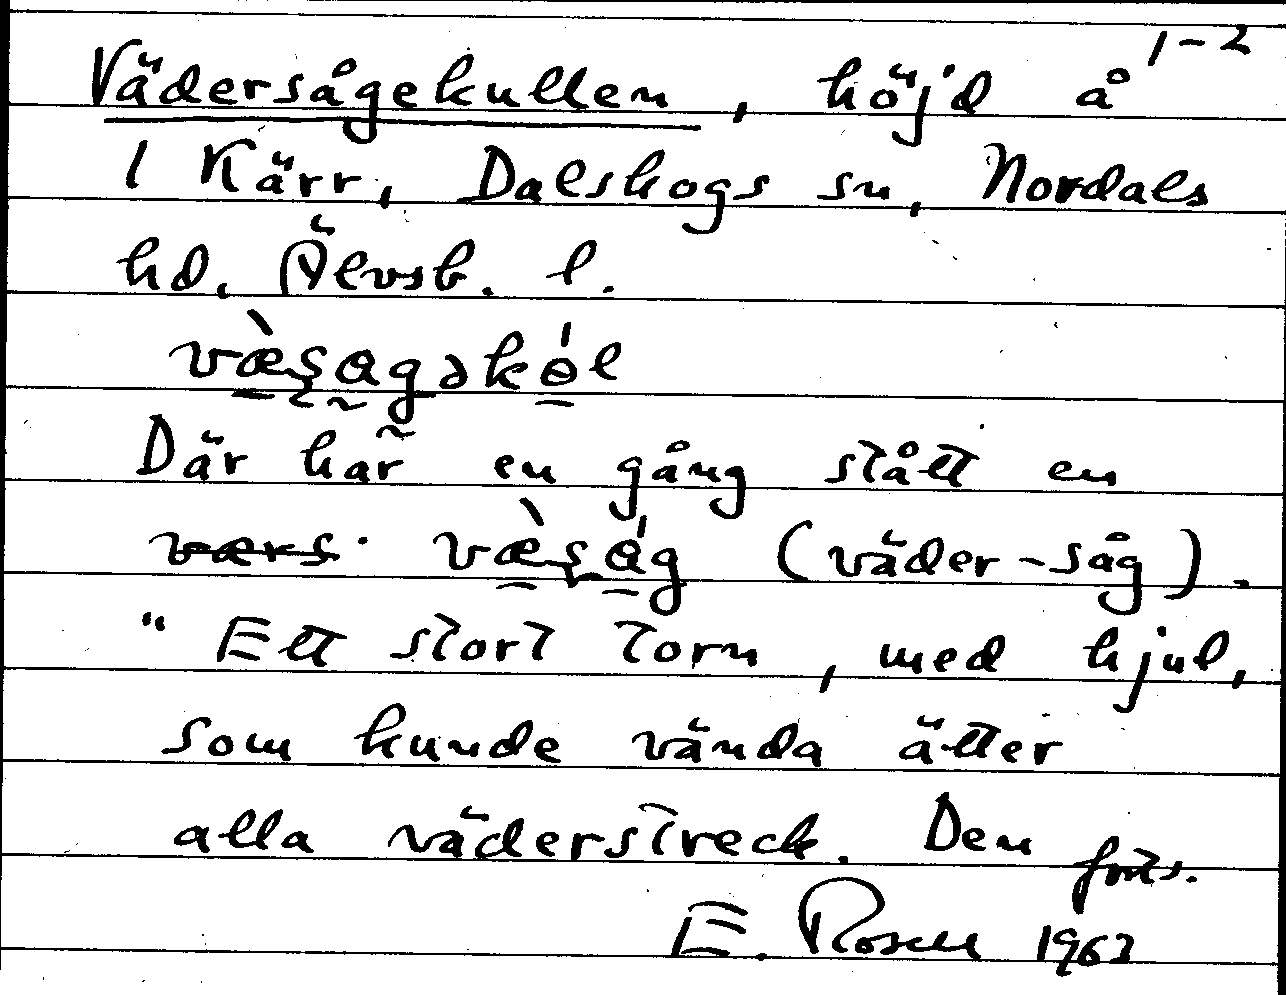 1-2
Vädersågekullen, höjd å
1 Kärr, Dalskogs sn, Nordals
hd. Älvsb. l.
væ̀s̨agəkɵ́l
Där har en gång stått en
værs. væ̀s̨ág (väder-såg).
"Ett stort torn, med hjul,
som kunde vända ätter
alla väderstreck. Den forts.
E. Rosell 1963